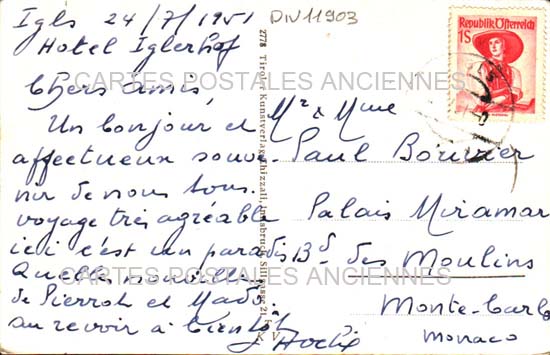 Igls 24/7/1951
Hotel Iglerhof
Chers Amis
Un bonjour et
affectueux souve-
nir de nous tous.
voyage très agréable
ici c'est un paradis
Quelles nouvelles
de Pierrot et Mado.
au revoir à bientôt
DIV11903
2778 Tiroler Kunstverlag Chizzali, Innsbruck, Sillgasse 21
K V
Republik Österreich
1S
Mr & Mme
Paul Bouvier
Palais Miramar
Bd des Moulins
Monte-Carlo
Monaco
CARTES POSTALES ANCIENNES
CARTES POSTALES ANCIENNES